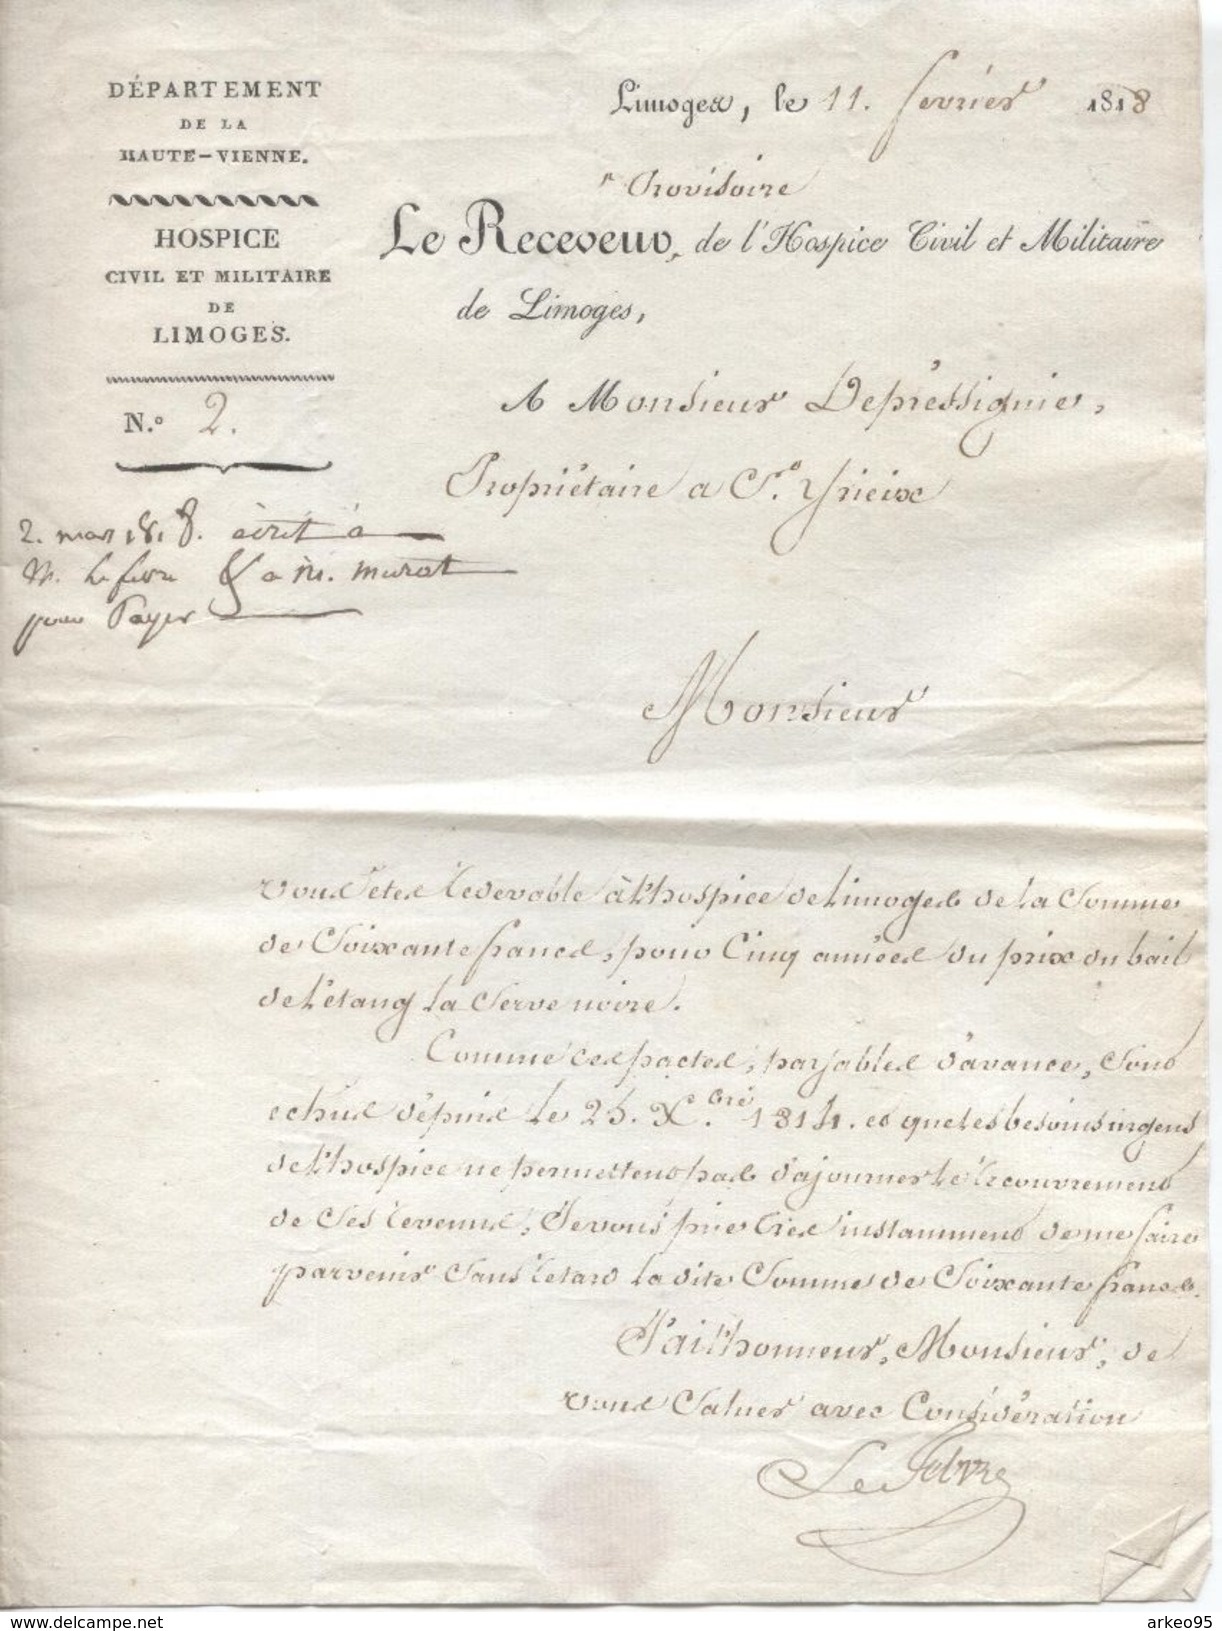 DÉPARTEMENT
DE LA
HAUTE-VIENNE.
HOSPICE
CIVIL ET MILITAIRE
DE
LIMOGES.
N.º 2.
2. mars 1818. écrit à
M. Lefevre & a M. murat
pour Payer
Limoges, le 11. fevrier 1818
Provisoire
Le Receveur, de l'Hospice Civil et Militaire
de Limoges,
A Monsieur Depressignie,
Propriétaire a St. Yrieix
Monsieur
vous étes redevable à l'hospice de Limoges de la Somme
de Soixante francs, pour Cinq années du prix du bail
de l'étang La Serve noire.
Comme ces pactes, payables d'avance, Sont
echus dépuis le 25. Xbre 1814. et que les besoins urgens
de l'hospice ne permettent pas d'ajourner le recouvrement
de Ses revenus, Je vous prie tres instamment de me faire
parvenir Sans retard la dite Somme de Soixante francs.
J'ai l'honneur, Monsieur, de
vous Saluer avec Considération
Le Febvre
delcampe.net
arkeo95